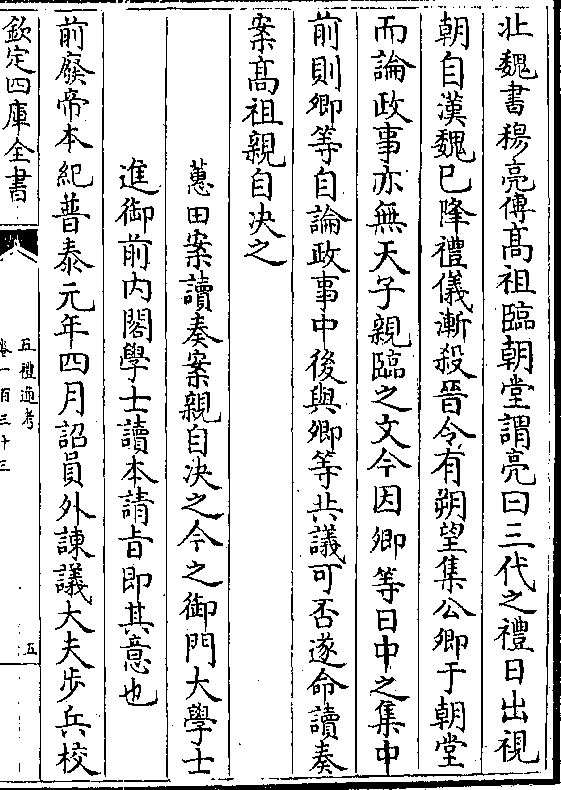 北魏書穆亮傳髙祖臨朝堂謂亮曰三代之禮日出視
朝自漢魏已降禮儀漸殺晉令有朔望集公卿于朝堂
而論政事亦無天子親臨之文今因卿等日中之集中
前則卿等自論政事中後與卿等共議可否遂命讀奏
案髙祖親自决之
蕙田案讀奏案親自决之今之御門大學士
進御前内閣學士讀本請旨即其意也
前廢帝本紀普泰元年四月詔員外諫議大夫步兵校
欽定四庫全書
五禮通考
卷一百三十三
五